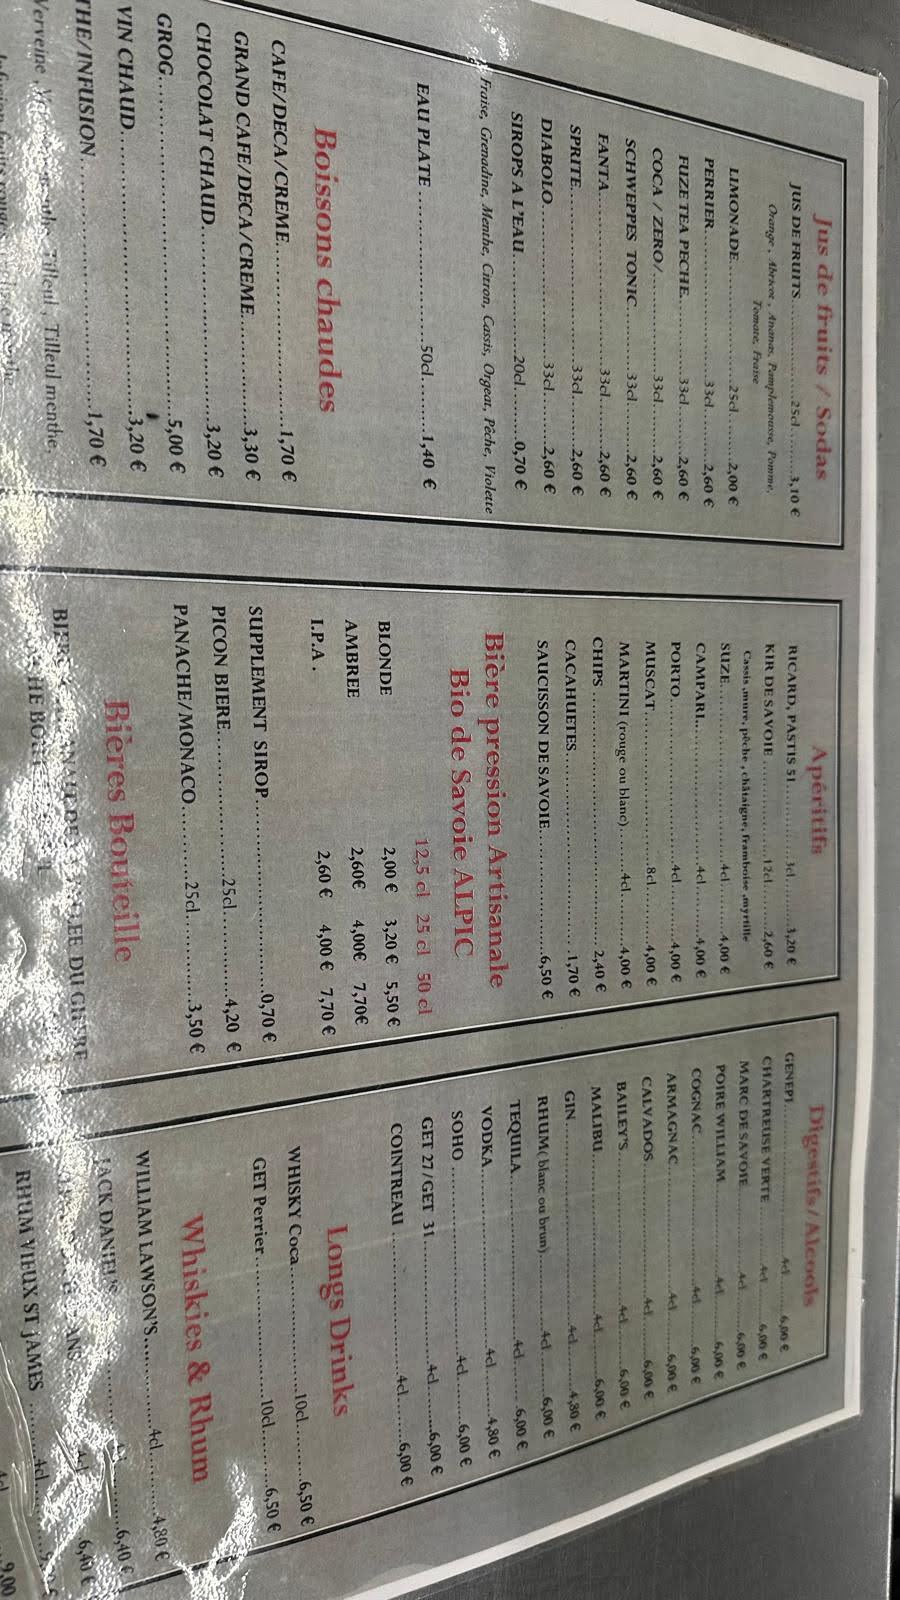 Jus de fruits / Sodas
JUS DE FRUITS ............ 25cl ........ 3,10 €
Orange , Abricot , Ananas, Pamplemousse, Pomme,
Tomate, Fraise
LIMONADE............ 25cl ........ 2,00 €
PERRIER............ 33cl ........ 2,60 €
FUZE TEA PECHE............ 33cl ........ 2,60 €
COCA / ZERO/............ 33cl ........ 2,60 €
SCHWEPPES TONIC ............ 33cl ........ 2,60 €
FANTA............ 33cl ........ 2,60 €
SPRITE............ 33cl ........ 2,60 €
DIABOLO............ 33cl ........ 2,60 €
SIROPS A L'EAU ............ 20cl ........ 0,70 €
Fraise, Grenadine, Menthe, Citron, Cassis, Orgeat, Pêche, Violette
EAU PLATE ............ 50cl ........ 1,40 €
Boissons chaudes
CAFE/DECA/CREME............ 1,70 €
GRAND CAFE/DECA/CREME............ 3,30 €
CHOCOLAT CHAUD............ 3,20 €
GROG............ 5,00 €
VIN CHAUD............ 3,20 €
THE/INFUSION ............ 1,70 €
Verveine , Tilleul , Tilleul menthe,
Apéritifs
RICARD, PASTIS 51............ 3cl ........ 3,20 €
KIR DE SAVOIE ............ 12cl ........ 2,60 €
Cassis ,mure, pêche , châtaigne, framboise ,myrtille
SUZE............ 4cl ........ 4,00 €
CAMPARI............ 4cl ........ 4,00 €
PORTO............ 4cl ........ 4,00 €
MUSCAT............ 8cl ........ 4,00 €
MARTINI (rouge ou blanc) ............ 4cl ........ 4,00 €
CHIPS ............ 2,40 €
CACAHUETES............ 1,70 €
SAUCISSON DE SAVOIE............ 6,50 €
Bière pression Artisanale
Bio de Savoie ALPIC
12,5 cl 25 cl 50 cl
BLONDE 2,00 € 3,20 € 5,50 €
AMBREE 2,60€ 4,00€ 7,70€
I.P.A . 2,60 € 4,00 € 7,70 €
SUPPLEMENT SIROP............ 0,70 €
PICON BIERE............ 25cl ........ 4,20 €
PANACHE/MONACO............ 25cl ........ 3,50 €
Bières Bouteille
DU GIFFRE
Digestifs/Alcools
GENEPI............ 4cl ........ 6,00 €
CHARTREUSE VERTE ............ 4cl ........ 6,00 €
MARC DE SAVOIE ............ 4cl ........ 6,00 €
POIRE WILLIAM............ 4cl ........ 6,00 €
COGNAC............ 4cl ........ 6,00 €
ARMAGNAC............ 4cl ........ 6,00 €
CALVADOS............ 4cl ........ 6,00 €
BAILEY'S............ 4cl ........ 6,00 €
MALIBU ............ 4cl ........ 6,00 €
GIN............ 4cl ........ 4,80 €
RHUM( blanc ou brun) ............ 4cl ........ 6,00 €
TEQUILA............ 4cl ........ 6,00 €
VODKA............ 4cl ........ 4,80 €
SOHO ............ 4cl ........ 6,00 €
GET 27/GET 31............ 4cl ........ 6,00 €
COINTREAU ............ 4cl ........ 6,00 €
Longs Drinks
WHISKY Coca............ 10cl ........ 6,50 €
GET Perrier............ 10cl ........ 6,50 €
Whiskies & Rhum
WILLIAM LAWSON'S............ 4cl ........ 4,80 €
JACK DANIEL'S ............ 4cl ........ 6,40 €
ANS ............ 4cl ........ 6,40 €
RHUM VIEUX ST JAMES ............ 4cl
9,00